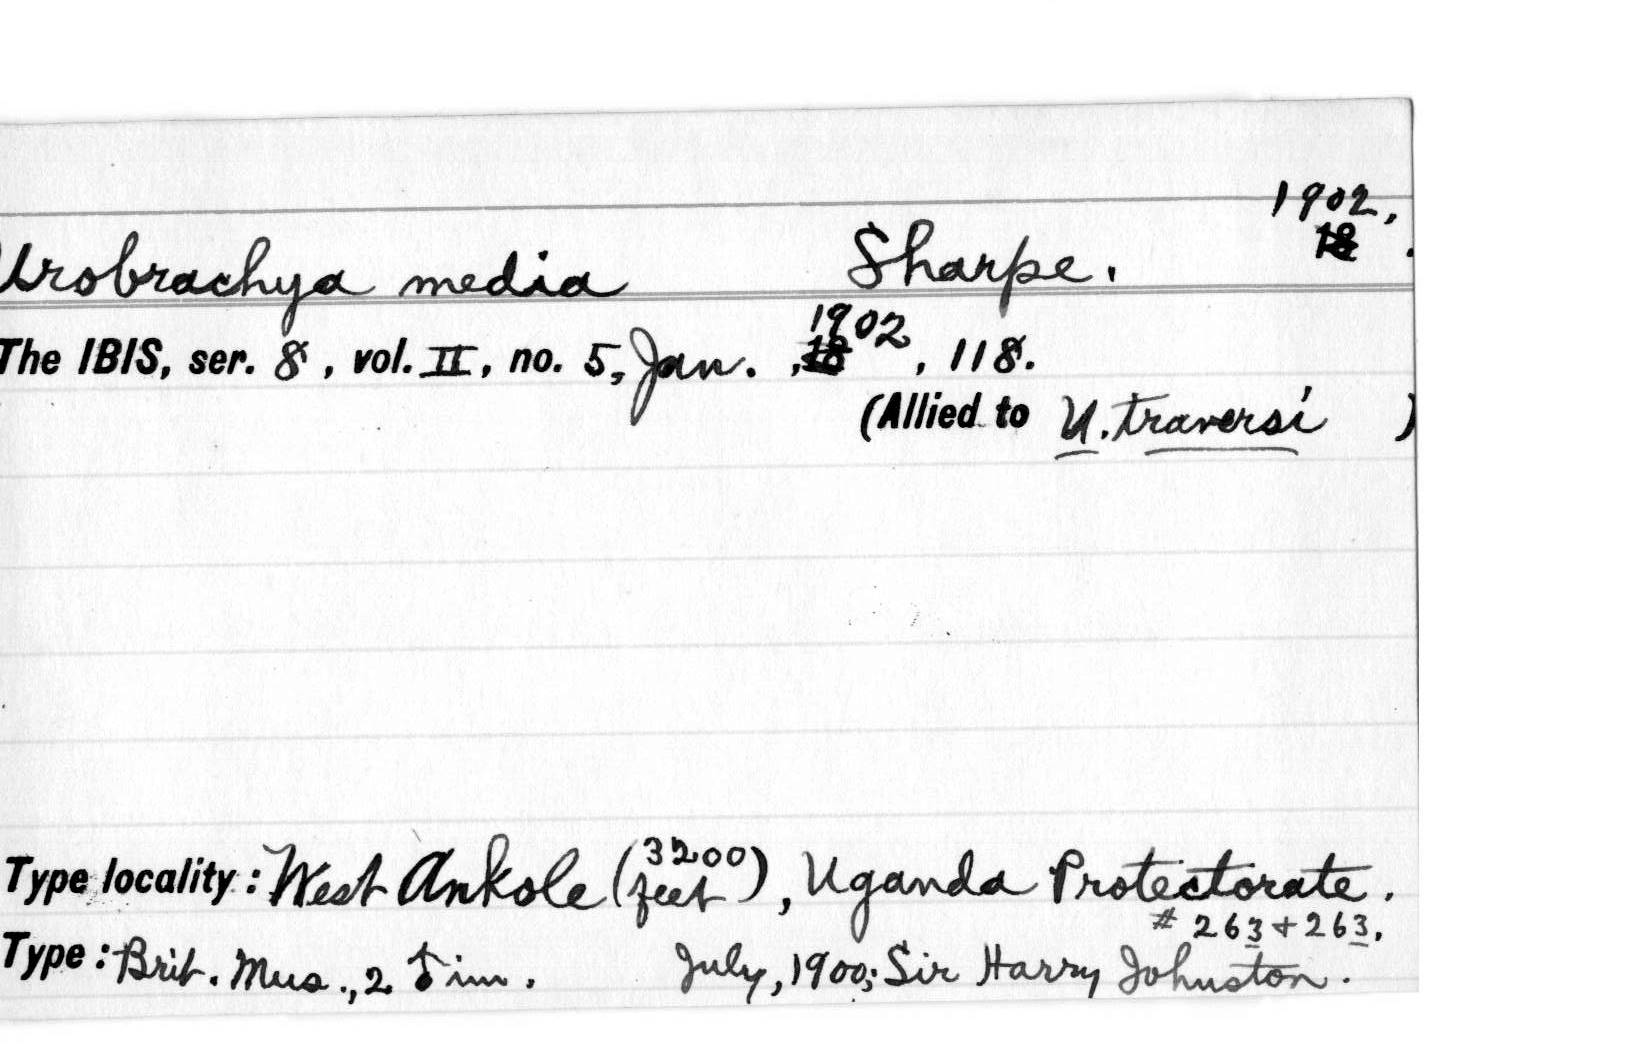 1902,
Urobrachya media Sharpe. 18 .
The IBIS, ser. 8, vol. II, no. 5, Jan. , 18 1902, 118.
(Allied to U. traversi )
Type locality: West Ankole (3200 feet), Uganda Protectorate.
# 263 + 263.
Type: Brit. Mus., 2 ♂ im. July, 1900; Sir Harry Johnston.